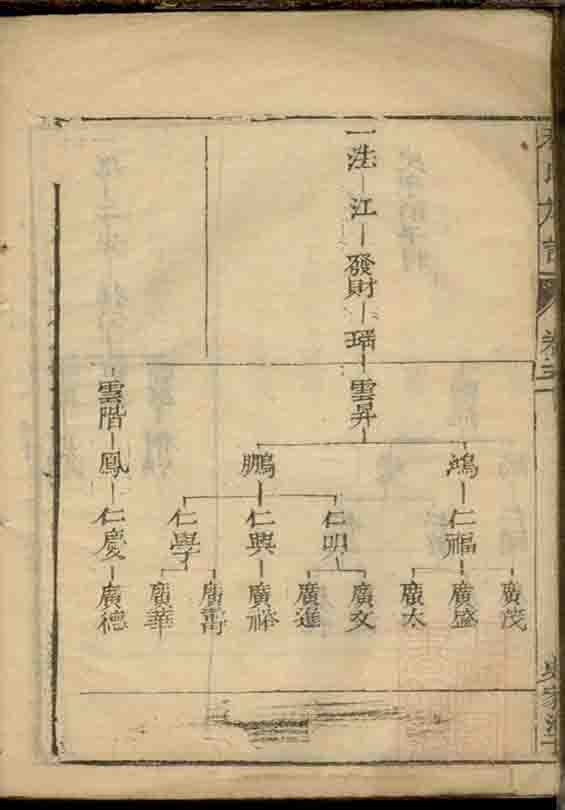 洪
江
發財
瑞
雲昇
鴻
鵬
仁福
仁明
仁興
仁學
廣茂
廣盛
廣太
廣文
廣進
廣裕
廣壽
廣華
雲階
鳳
仁慶
廣德